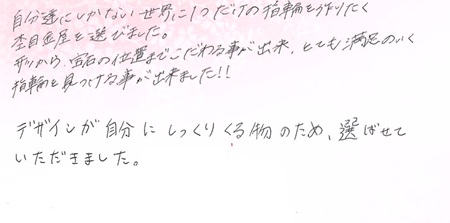 自分達にしかない世界に1つだけの指輪を作りたく
杢目金屋を選びました。
形から、宝石の位置までこだわる事が出来、とても満足のいく
指輪を見つける事が出来ました!!
デザインが自分にしっくりくる物のため、選ばせて
いただきました。